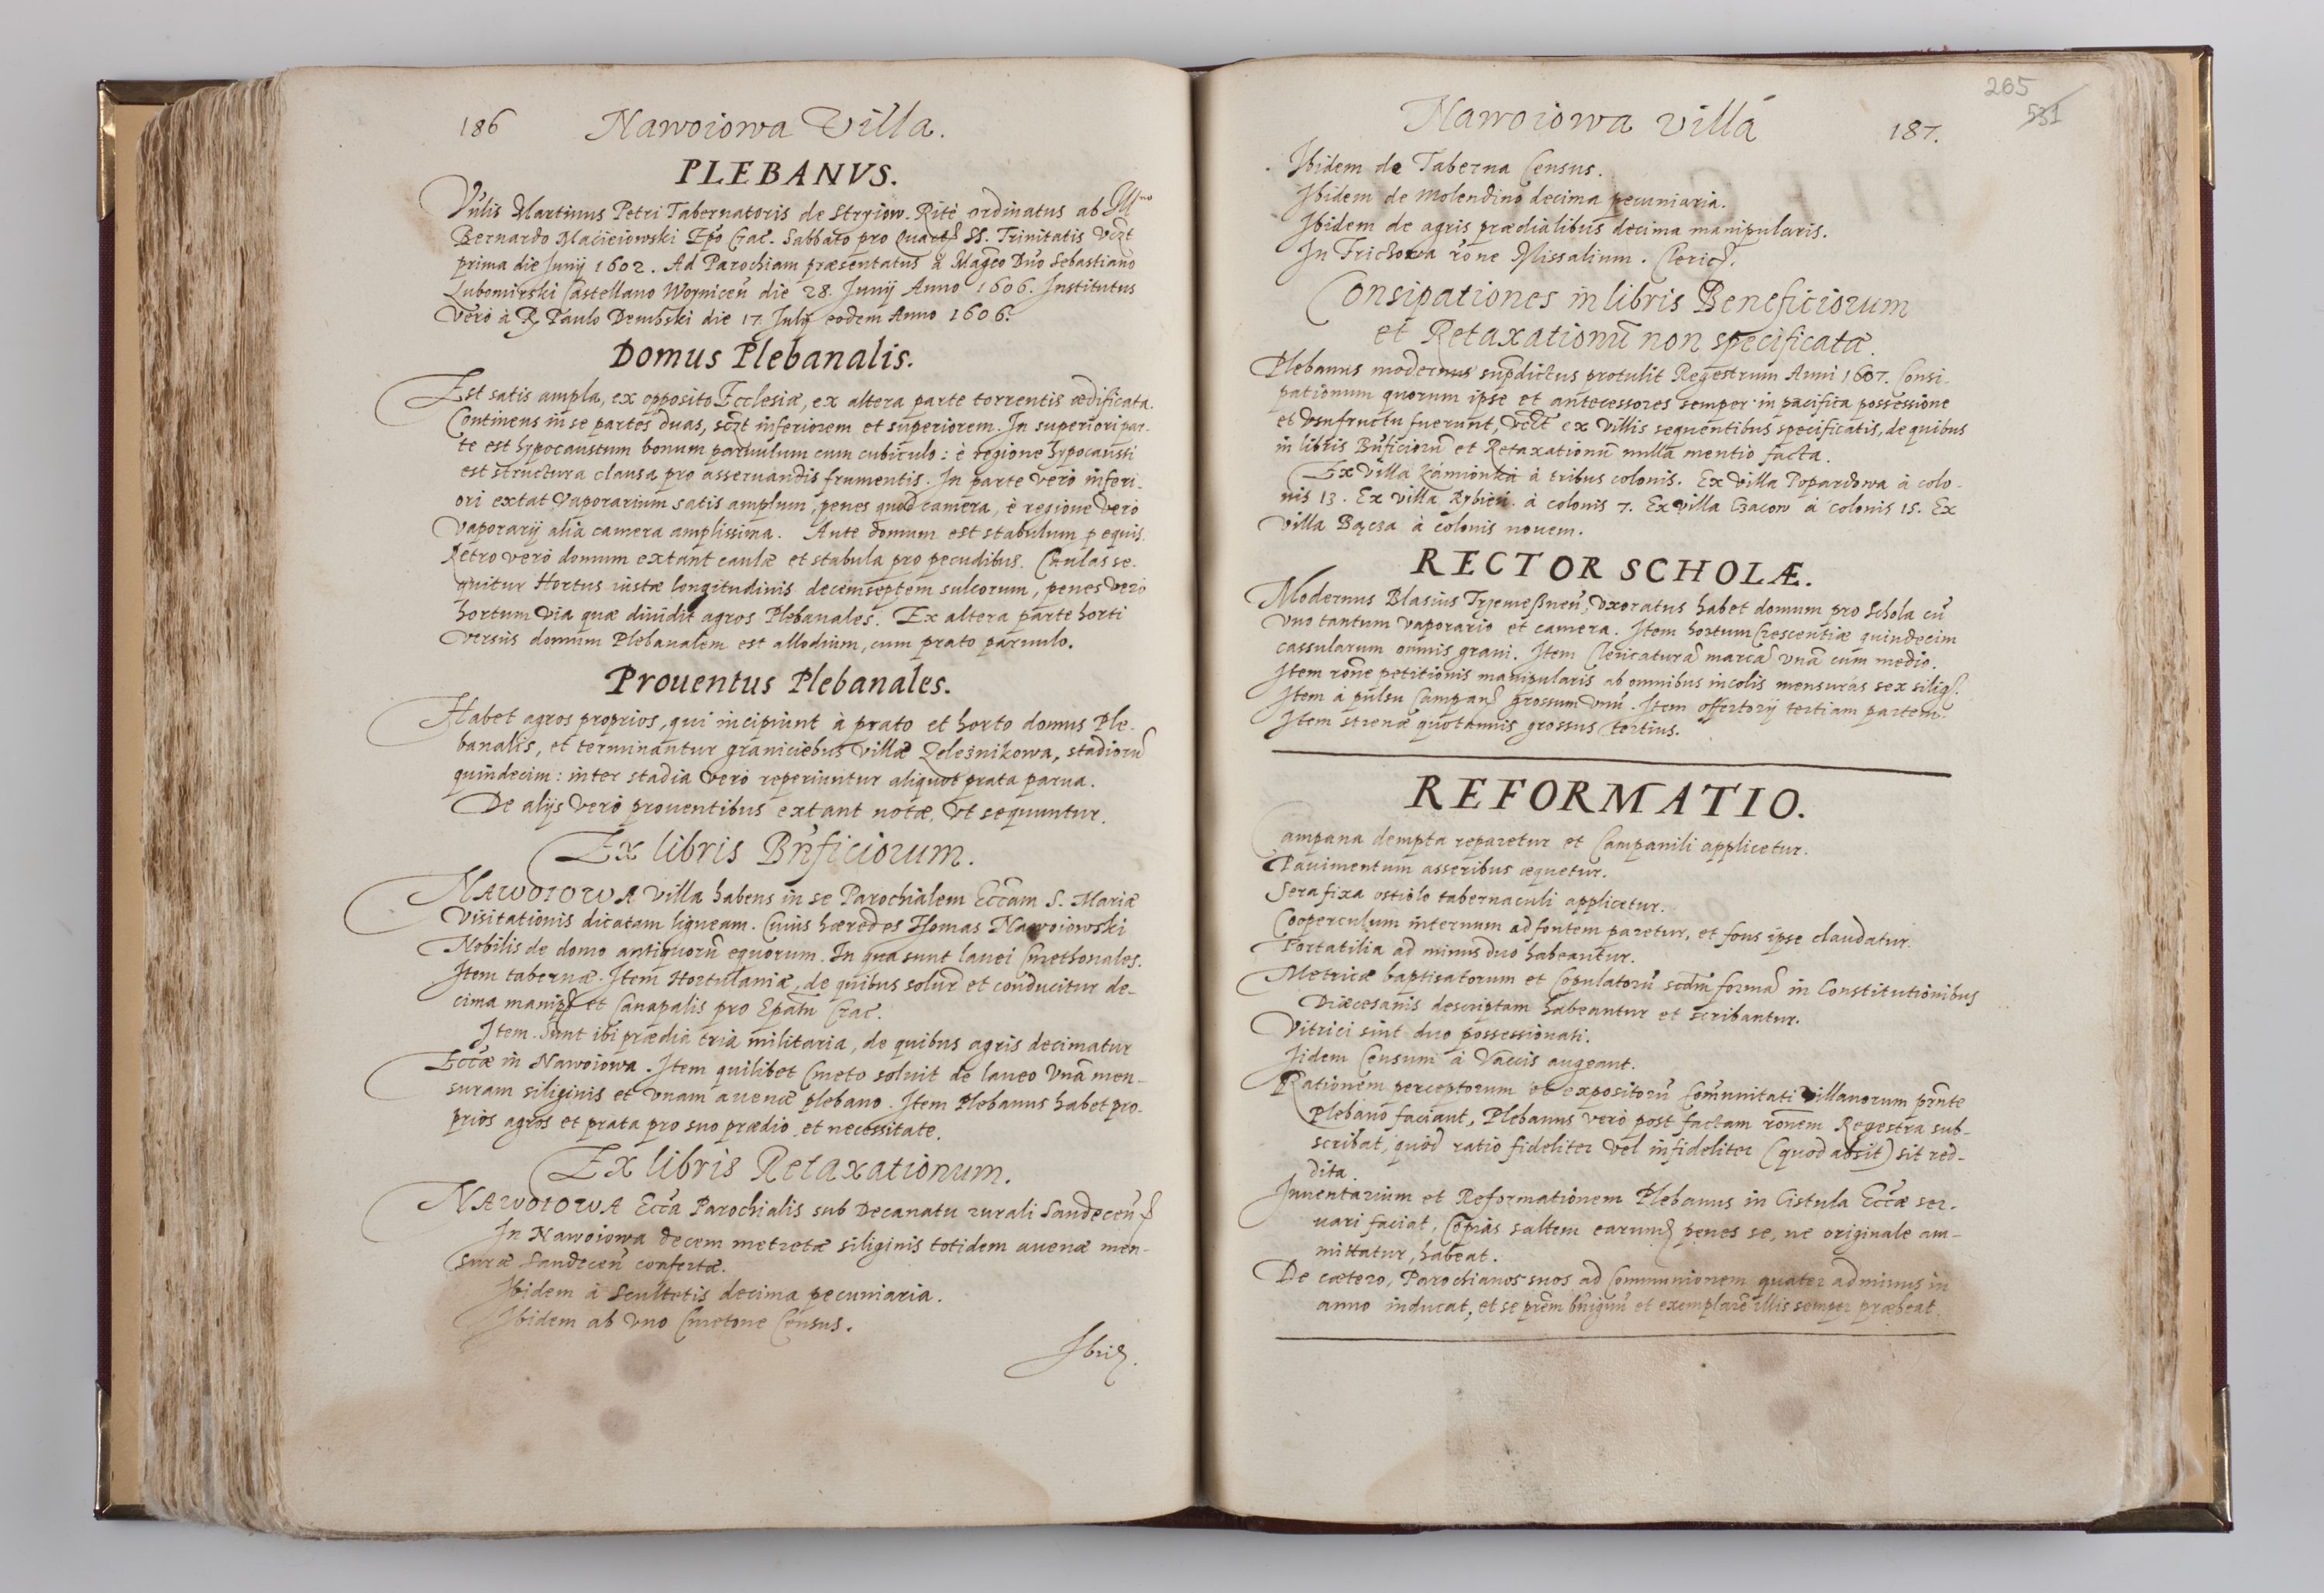 186 Nawoiowa Villa.
PLEBANVS.
Vńlis Martinus Petri Tabernatoris de Stryiow. Ritè ordinatus ab Illmo
Bernardo Macieiowski Epō Crac. Sabbato pro Quart SS. Trinitatis vczt
prima die Junij 1602. Ad Parochiam præsentatus à Magco Dńo Sebastiano
Lubomirski Castellano Woyniceń die 28. Junij Anno 1606. Institutus
verò à R Paulo Dembski die 17 Julij eodem Anno 1606.
Domus Plebanalis.
Est satis ampla, ex opposito Ecclesiæ, ex altera parte torrentis ædificata.
Continens in se partes duas, sczt inferiorem et superiorem. In superiori par-
te est hypocaustum bonum paruulum cum cubiculo: è regione hypocausti
est structura clausa pro asseruandis frumentis. In parte verò inferi-
ori extat vaporarium satis amplum, penes quod camera, è regione verò
vaporarij alia camera amplissima. Ante domum est stabulum p equis.
Retro verò domum extant caulæ et stabula pro pecudibus. Caulas se-
quitur Hortus iustæ longitudinis decemseptem sulcorum, penes verò
hortum via quæ diuidit agros Plebanales. Ex altera parte horti
versùs domum Plebanalem est allodium, cum prato paruulo.
Prouentus Plebanales.
Habet agros proprios, qui incipiunt à prato et horto domus Ple-
banalis, et terminantur graniciebus villæ Zeleśnikowa, stadiorū
quindecim: inter stadia verò reperiuntur aliquot prata parua.
De alijs verò prouentibus extant notæ, vt sequuntur.
Ex libris Bńficiorum.
NAWOIOWA villa habens in se Parochialem Eccām S. Mariæ
Visitationis dicatam ligneam. Cuius hæredes Thomas Nawoiowski
Nobilis de domo antiquorū equorum. In qua sunt lanei Cmethonales.
Item tabernæ. Item Hortulaniæ, de quibus soluīt et conducitur de-
cima manip et Canapalis pro Epātu Crac.
Item. Sunt ibi prædia tria militaria, de quibus agris decimatur
Eccæ in Nawoiowa. Item quilibet Cmeto soluit de laneo vnā men-
suram siliginis et vnam auenæ plebano. Item Plebanus habet pro-
prios agros et prata pro suo prædio et necessitate.
Ex libris Retaxationum.
NAWOIOWA Eccā Parochialis sub Decanatu rurali Sandeceń
In Nawoiowa decem metretæ siliginis totidem auenæ men-
suræ Sandeceń confertæ.
Ibidem à Scultetis decima pecuniaria.
Ibidem ab vno Cmetone Census.
Ibid.
Nawoiowa villa 187.
265
531
Ibidem de Taberna Census.
Ibidem de Molendino decima pecuniaria.
Ibidem de agris prædialibus decima manipularis.
In Frichowa rōne Missalium. Cleric.
Consipationes in libris Beneficiorum
et Retaxationū non specificatæ.
Plebanus modernus supdictus protulit Regestrum Anni 1607. Consi-
pationum quorum ipse et antecessores semper in pacifica possessione
et vsufructu fuerunt, vczt ex villis sequentibus specificatis, de quibus
in libris Bńficiorū et Retaxationū nulla mentio facta.
Ex villa Kamionka à tribus colonis. Ex villa Popardowa à colo-
nis 13. Ex villa Rybień. à colonis 7. Ex villa Czacow à colonis 15. Ex
villa Bącza à colonis nouem.
RECTOR SCHOLÆ.
Modernus Blasius Trzemeßneń, vxoratus habet domum pro Schola cū
vno tantum vaporario et camera. Item hortum Crescentiæ quindecim
cassularum omnis grani. Item Clericaturā marcā vnā cum medio.
Item rōne petitionis manipularis ab omnibus incolis mensuras sex silig.
Item à pulsu Campan grossum vnū. Item offertorij tertiam partem.
Item strenæ quotannis grossus tertius.
REFORMATIO.
Campana dempta reparetur et Campanili applicetur.
Pauimentum asseribus æquetur.
Sera fixa ostiolo tabernaculi applicetur.
Cooperculum internum ad fontem paretur, et fons ipse claudatur.
Portatilia ad minus duo habeantur.
Metricæ baptisatorum et Copulatorū scdm formā in Constitutionibus
Diæcesanis descriptam habeantur et scribantur.
Vitrici sint duo possessionati.
Iidem Censum à Vaccis augeant.
Rationem perceptorum et expositorū Comūnitati villanorum prnte
Plebano faciant, Plebanus verò post factam rōnem Regestra sub-
scribat, quòd ratio fideliter vel infideliter (quod absit) sit red-
dita.
Inuentarium et Reformationem Plebanus in Cistula Eccæ ser-
uari faciat, Copias saltem earund penes se, ne originale am-
mittatur, habeat.
De cætero, Parochianos suos ad Communionem quater adminus in
anno inducat, et se prēm bńignū et exemplarē illis semper præbeat.